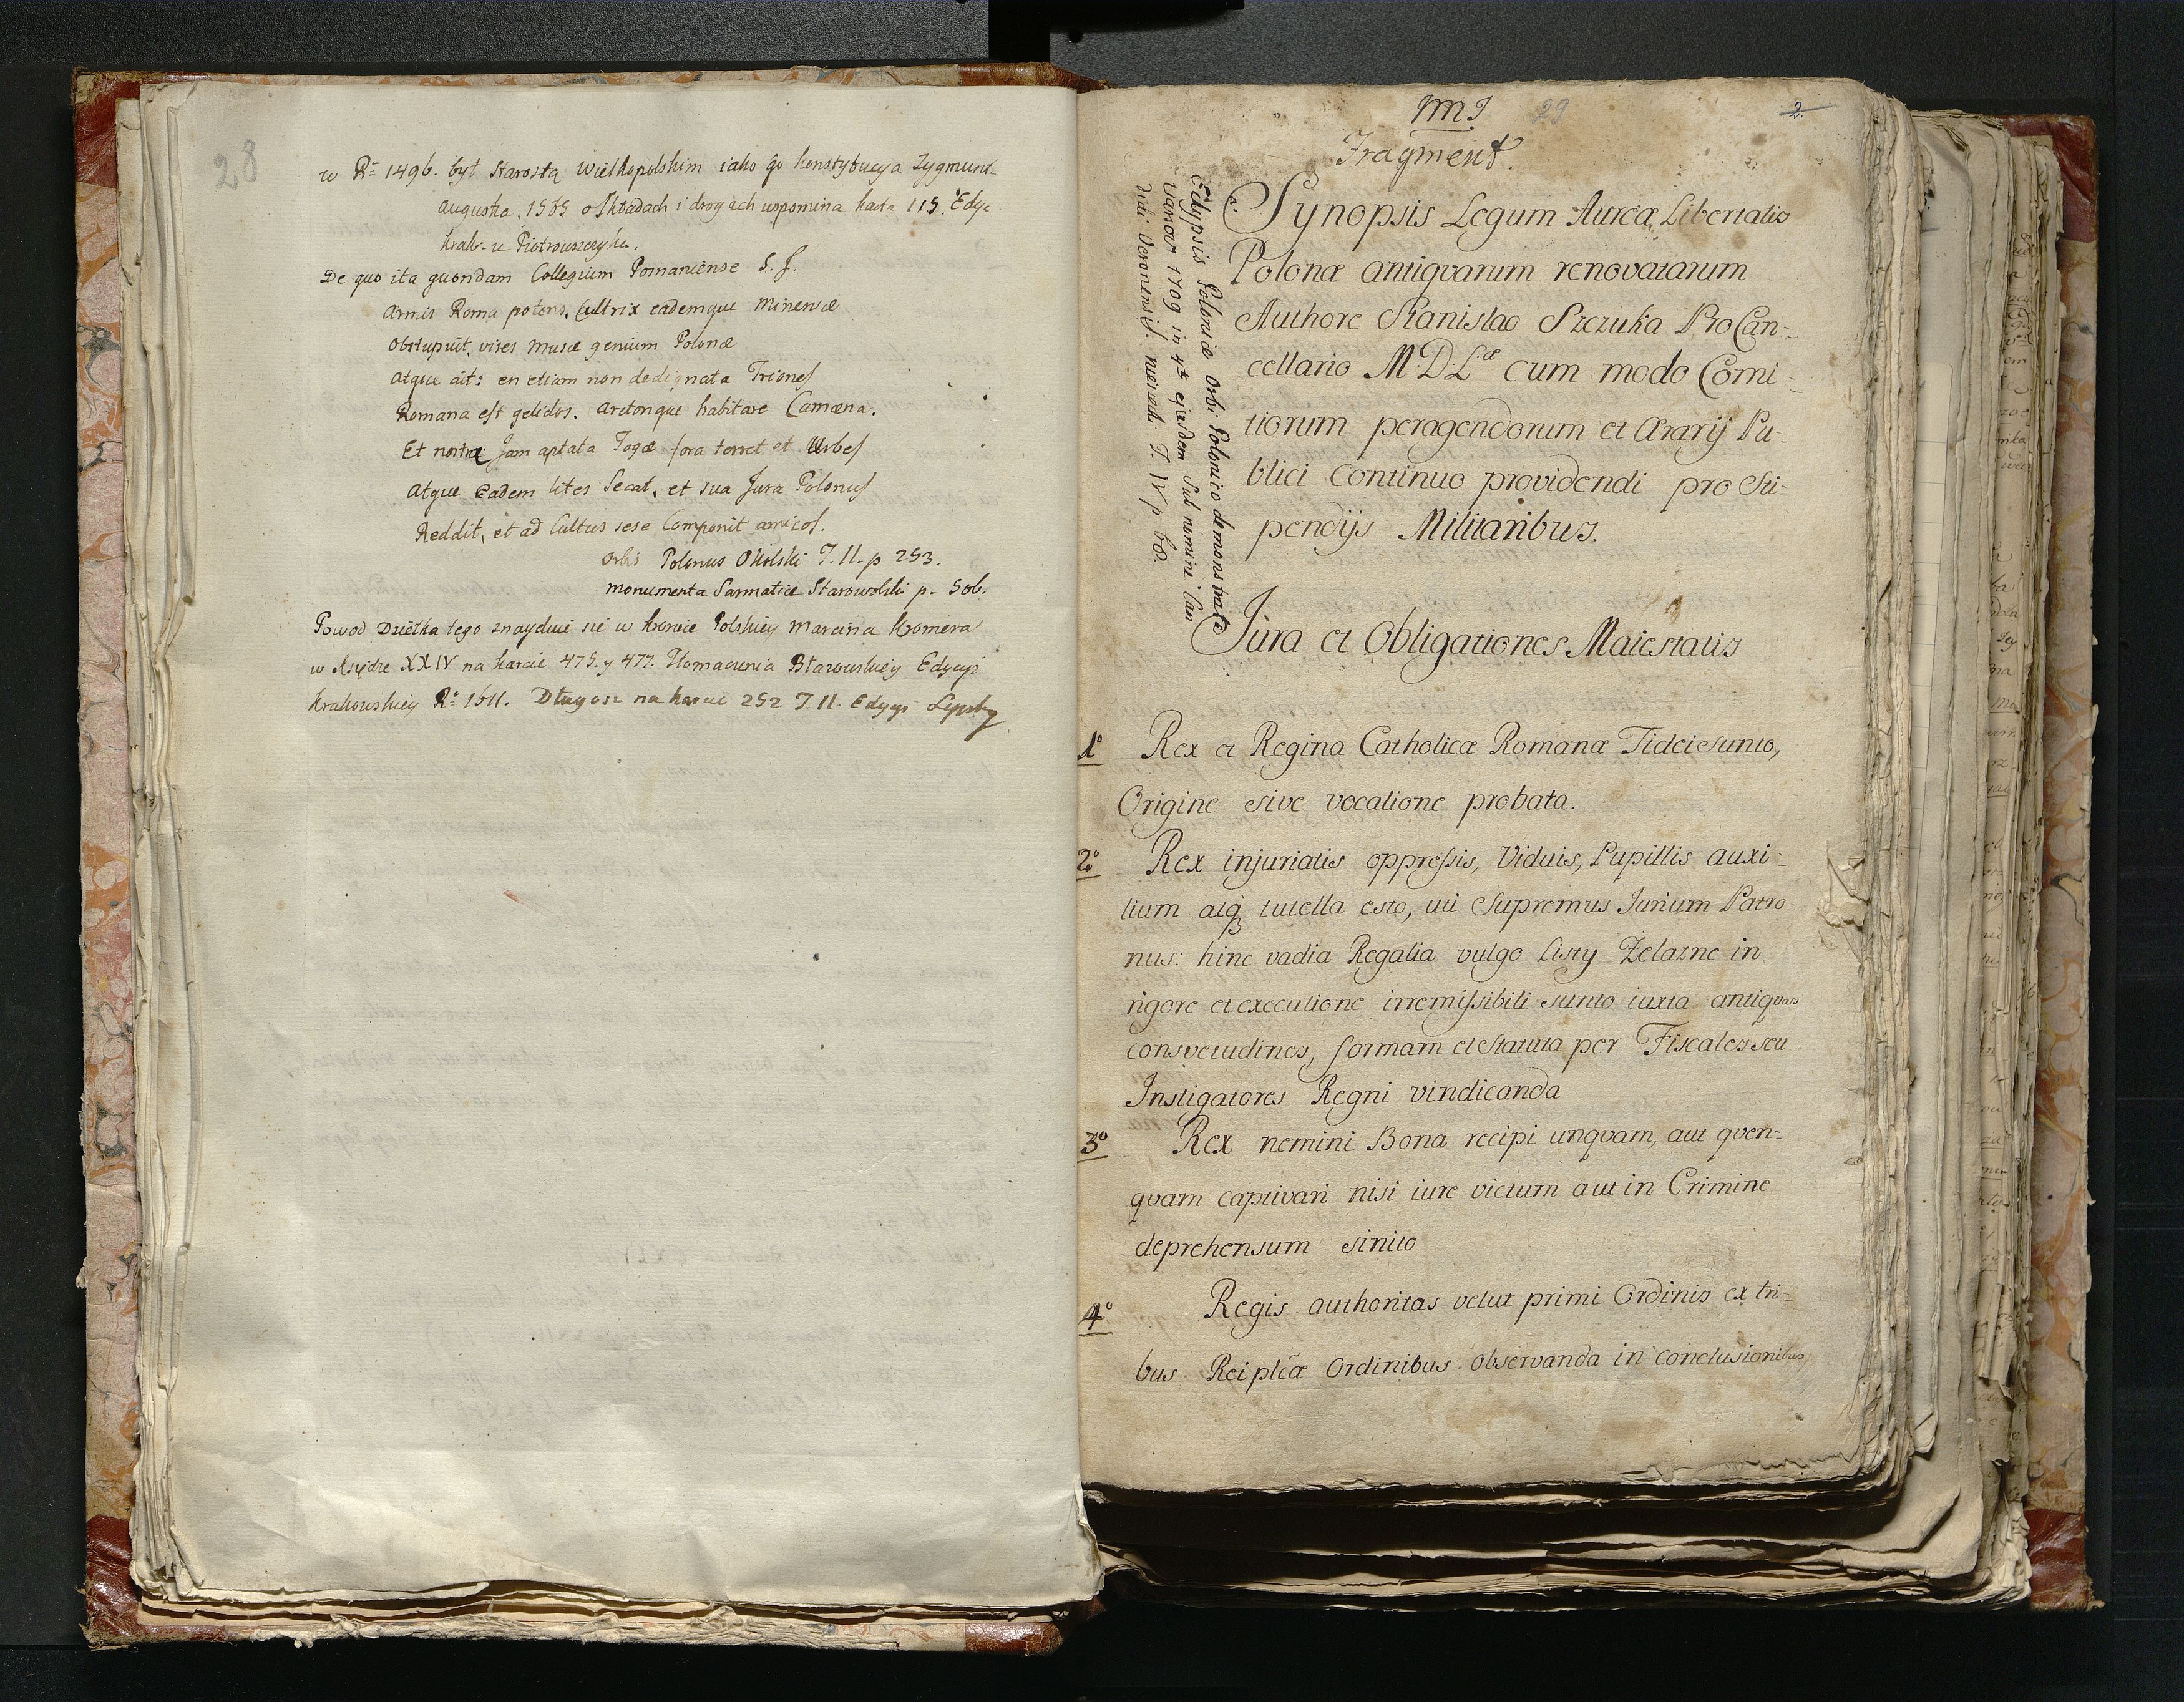 28
w Rº 1496. był Starostą Wielkopolskim iako go konstytucya Zygmunt-
Augusta. 1565 o Składach i drogach wspomina karta 115. Edy-
krak- u Piotrowczyka.
De quo ita quondam Collegium Posnaniense S. J.
Armis Roma potens, Cultrix eademque Minervæ
Obstupuit, vires Musæ genium Polonæ
Atque ait: en etiam non dedignata Triones
Romana est gelidos, arctonque habitare Camæna.
Et nostræ Jam aptata Togæ fora terret et Urbes
Atque Eadem lites Secat, et sua Jura Polonus
Reddit, et ad Cultus sese Componit amicos.
Orbis Polonus Okolski T. II. p 253.
Monumenta Sarmatiæ Starowolski p. 506.
Powod Dziełka tego znayduie się w kronice Polskiey Marcina Kromera
w Księdze XXIV na karcie 475. y 477. Tłomaczenia Błazowskiey Edycyi
Krakowskiey Rº 1611. Długosz na karcie 252 T. II. Edycyi Lipsky
29
2.
Fragment.
Synopsis Legum Aureæ Libertatis
Polonæ antiqvarum renovatarum
Authore Stanislao Szczuka ProCan-
cellario M. D. Læ cum modo Comi-
tiorum peragendorum et Ærarij Pu-
blici continuo providendi pro Sti-
pendijs Militaribus.
Eclypsis Poloniæ Orbi Polonico demonstrata
1709 in 4to ejusdem Sub nomine Can
didi Veronensis. T. IV p 60.
Jura et Obligationes Maiestatis
1º Rex et Regina Catholicæ Romanæ Fidei sunto,
Origine sive vocatione probata.
2º Rex injuriatis oppressis, Viduis, Pupillis auxi-
lium atq tutella esto, uti Supremus Iurium Patro-
nus: hinc vadia Regalia vulgo Listy Żelazne in
rigore et executione irremissibili sunto iuxta antiqvas
consvetudines, formam et statuta per Fiscales seu
Instigatores Regni vindicanda
3º Rex nemini Bona recipi unqvam, aut qven-
qvam captivari nisi iure victum aut in Crimine
deprehensum sinito
4º Regis authoritas velut primi Ordinis ex tri-
bus Reiplcæ Ordinibus observanda in conclusionibus